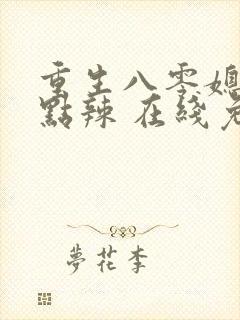 重生八零媳
點辣 在綫
夢花李